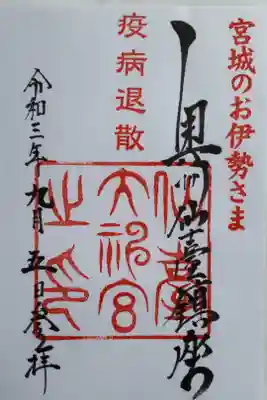 宮城のお伊勢さま
奥州仙臺鎮座
疫病退散
仙臺大神宮之印
令和三年九月五日参拝